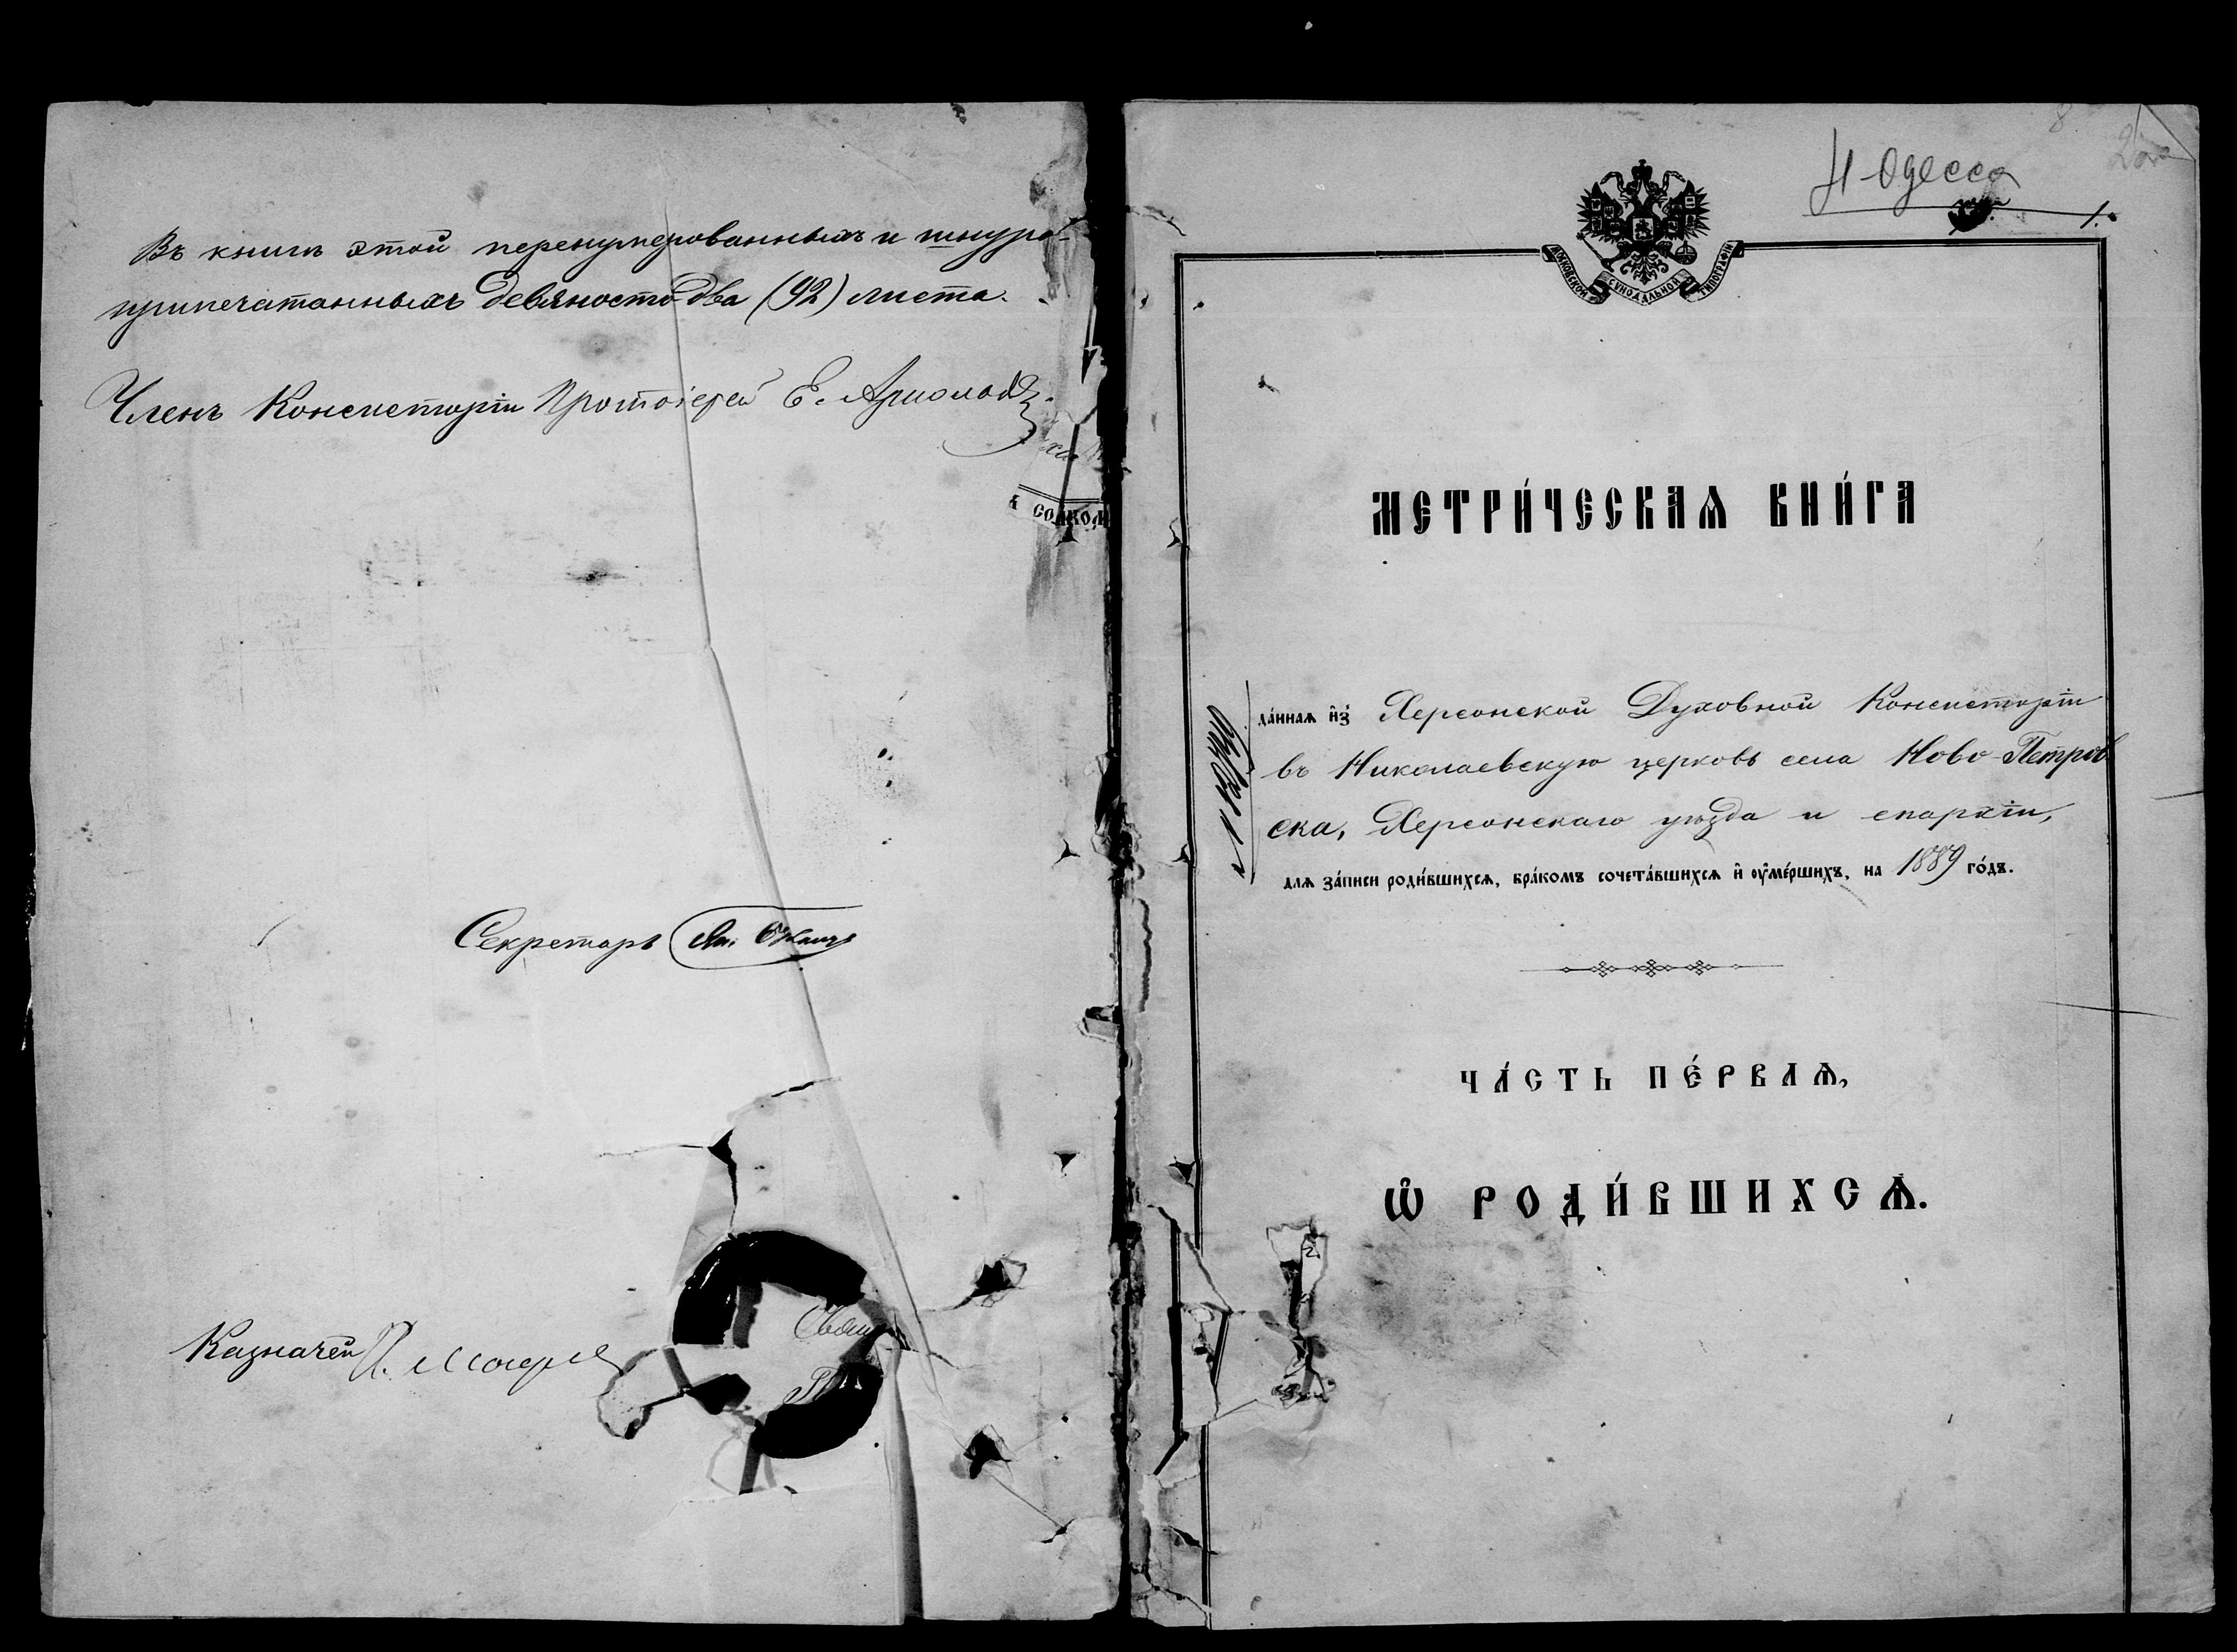 Въ книгѣ этой перенумерованныхъ и шнуро-
припечатанныхъ девяносто два (92) листа.
Членъ Консисторіи Протоіерей Е.
Секретарь
Казначей
Одесса
1.
МОСКОВСКОЙ СѴНОДАЛЬНОЙ ТИПОГРАФІИ
МЕТРИ́ЧЕСКАѦ КНИ́ГА
да́ннаѧ и҆з̾ Херсонской Духовной Консисторіи
въ Николаевскую церковь села Ново-Петров
ска, Херсонскаго уѣзда и епархіи,
длѧ за́писи роди́вшихсѧ, бра́комъ сочета́вшихсѧ и҆ ѹ҆ме́ршихъ, на 1889 го́дъ.
ЧА́СТЬ ПЕ́РВАѦ,
Ѡ҆ РОДИ́ВШИХСѦ.